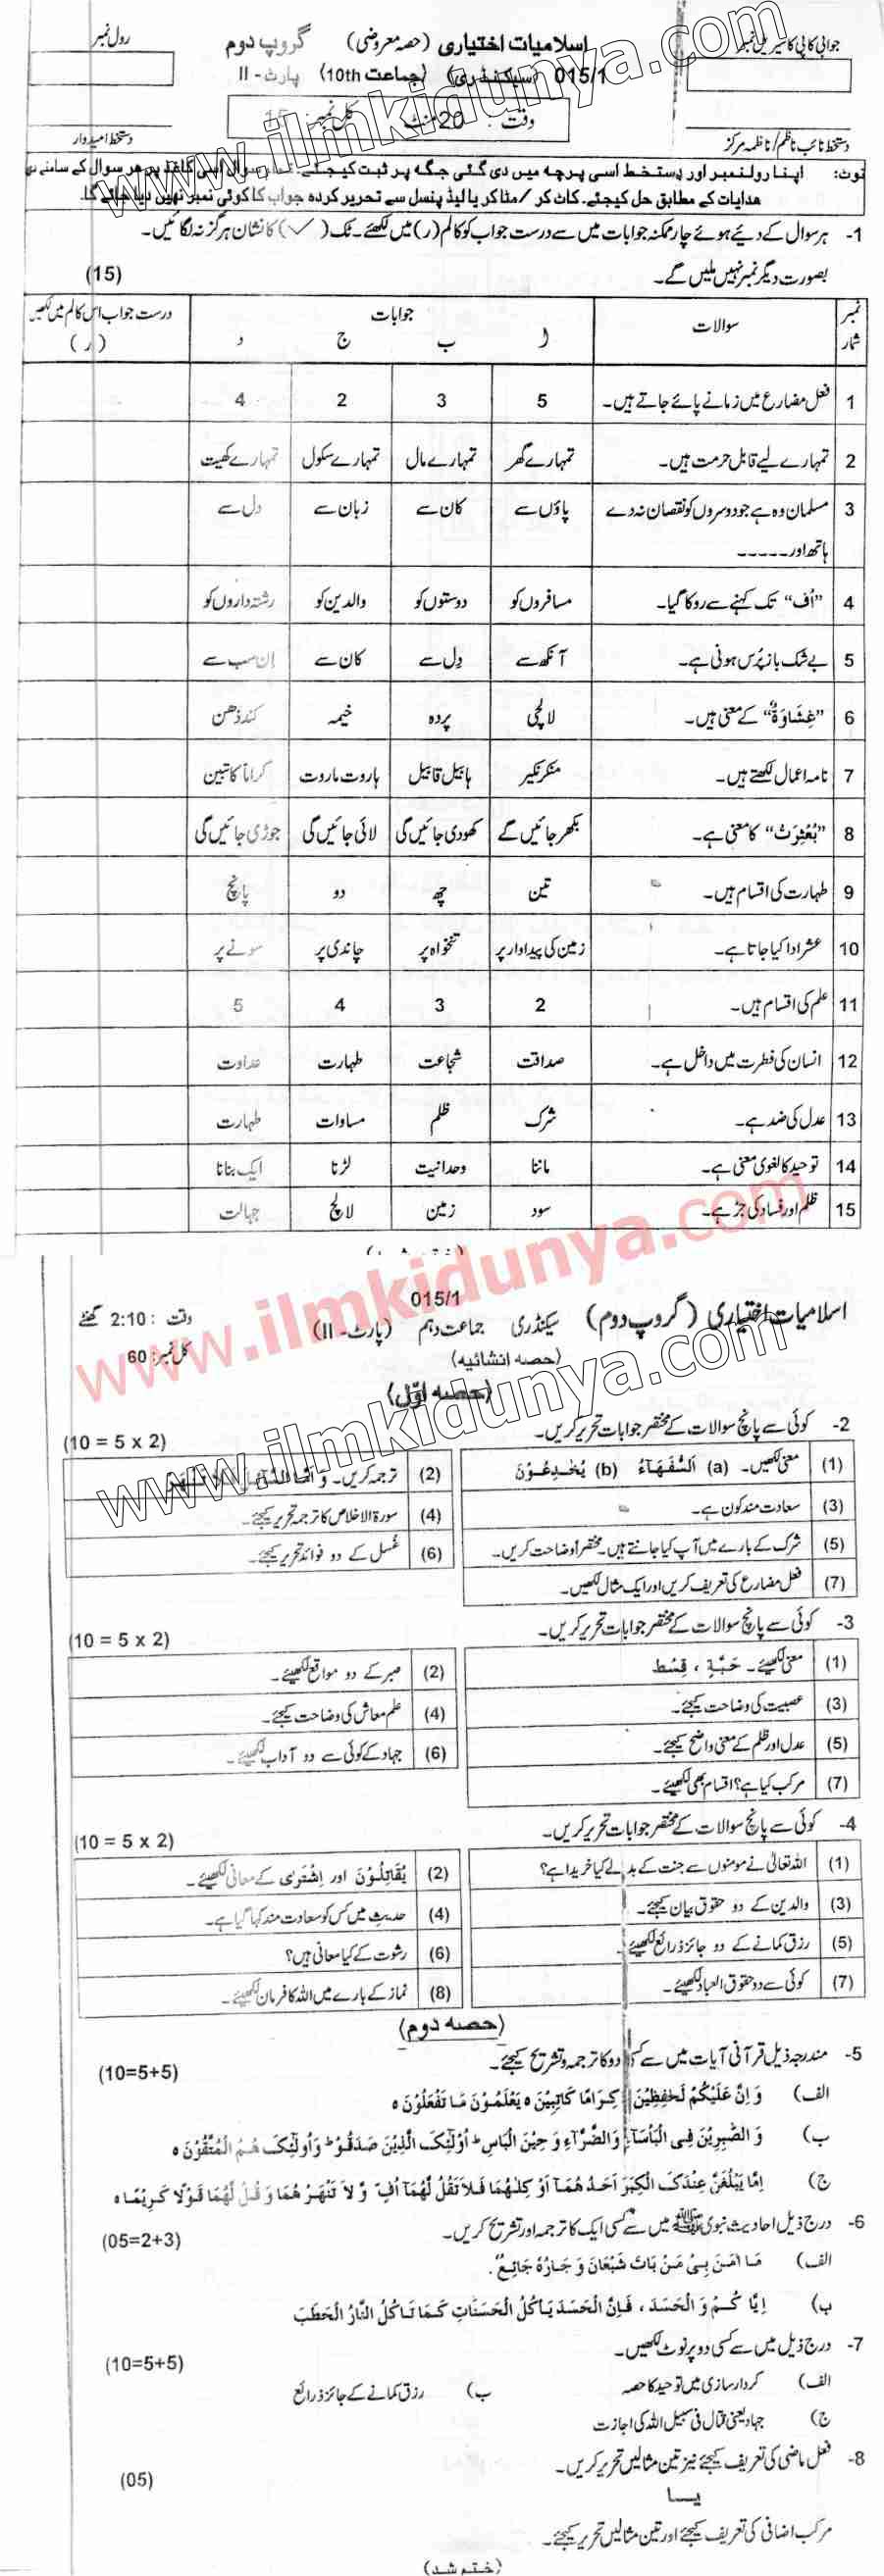 اسلامیات اختیاری (حصہ معروضی) گروپ دوم
جوابی کاپی کا سیریل نمبر
رول نمبر
015/1 (سیکنڈری) (جماعت 10th) پارٹ - II
وقت : 20 منٹ کل نمبر : 15
دستخط نائب ناظم / ناظمہ مرکز
دستخط امیدوار
www.ilmkidunya.com
نوٹ: اپنا رولنمبر اور دستخط اسی پرچہ میں دی گئی جگہ پر ثبت کیجئے۔ تمام سوال اسی کاغذ پر ہر سوال کے سامنے دی
ہدایات کے مطابق حل کیجئے۔ کاٹ کر / مٹا کر یا لیڈ پنسل سے تحریر کردہ جواب کا کوئی نمبر نہیں دیا جائے گا۔
1- ہر سوال کے دئیے ہوئے چار ممکنہ جوابات میں سے درست جواب کو کالم (ر) میں لکھئے۔ ٹک (✓) کا نشان ہرگز نہ لگائیں۔
بصورت دیگر نمبر نہیں ملیں گے۔ (15)
نمبر شمار سوالات جوابات درست جواب اس کالم میں لکھیں
ا ب ج د (ر)
1 فعل مضارع میں زمانے پائے جاتے ہیں۔ 5 3 2 4
2 تمہارے لیے قابل حرمت ہیں۔ تمہارے گھر تمہارے مال تمہارے سکول تمہارے کھیت
3 مسلمان وہ ہے جو دوسروں کو نقصان نہ دے پاؤں سے کان سے زبان سے دل سے
ہاتھ اور -----
4 “اُف” تک کہنے سے روکا گیا۔ مسافروں کو دوستوں کو والدین کو رشتہ داروں کو
5 بے شک باز پُرس ہونی ہے۔ آنکھ سے دِل سے کان سے اِن سب سے
6 “غِشَاوَةٌ” کے معنی ہیں۔ لالچی پردہ خیمہ کند ذھن
7 نامہ اعمال لکھتے ہیں۔ منکر نکیر ہابیل قابیل ہاروت ماروت کراماً کاتبین
8 “بُعْثِرَتْ” کا معنی ہے۔ بکھر جائیں گے کھودی جائیں گی لائی جائیں گی جوڑی جائیں گی
9 طہارت کی اقسام ہیں۔ تین چھ دو پانچ
10 عشر ادا کیا جاتا ہے۔ زمین کی پیداوار پر تنخواہ پر چاندی پر سونے پر
11 علم کی اقسام ہیں۔ 2 3 4 5
12 انسان کی فطرت میں داخل ہے۔ صداقت شجاعت طہارت عداوت
13 عدل کی ضد ہے۔ شرک ظلم مساوات طہارت
14 توحید کا لغوی معنی ہے۔ ماننا وحدانیت لڑنا ایک بنانا
15 ظلم اور فساد کی جڑ ہے۔ سود زمین لالچ جہالت
www.ilmkidunya.com
015/1
اسلامیات اختیاری (گروپ دوم) سیکنڈری جماعت دہم (پارٹ - II) وقت : 2:10 گھنٹے
(حصہ انشائیہ) کل نمبر: 60
(حصہ اوّل)
www.ilmkidunya.com
2- کوئی سے پانچ سوالات کے مختصر جوابات تحریر کریں۔ (10 = 5 x 2)
(1) معنی لکھیں۔ (a) اَلسُّفَهَآءُ (b) يُخٰدِعُوْنَ
(2) ترجمہ کریں۔ وَ اَمَّا السَّآئِلَ فَلَا تَنْهَرْ
(3) سعادت مند کون ہے۔
(4) سورۃ الاخلاص کا ترجمہ تحریر کیجئے۔
(5) شرک کے بارے میں آپ کیا جانتے ہیں۔ مختصراً وضاحت کریں۔
(6) غُسل کے دو فوائد تحریر کیجئے۔
(7) فعل مضارع کی تعریف کریں اور ایک مثال لکھیں۔
3- کوئی سے پانچ سوالات کے مختصر جوابات تحریر کریں۔ (10 = 5 x 2)
(1) معنی لکھیئے۔ حَبَّةٍ ، قِسْط
(2) صبر کے دو مواقع لکھیئے۔
(3) عصبیت کی وضاحت کیجئے۔
(4) علم معاش کی وضاحت کیجئے۔
(5) عدل اور ظلم کے معنی واضح کیجئے۔
(6) جہاد کے کوئی سے دو آداب لکھیئے۔
(7) مرکب کیا ہے؟ اقسام بھی لکھیئے۔
4- کوئی سے پانچ سوالات کے مختصر جوابات تحریر کریں۔ (10 = 5 x 2)
(1) اللہ تعالیٰ نے مومنوں سے جنت کے بدلے کیا خریدا ہے؟
(2) يُقَاتِلُوْنَ اور اِشْتَرٰى کے معانی لکھیئے۔
(3) والدین کے دو حقوق بیان کیجئے۔
(4) حدیث میں کس کو سعادت مند کہا گیا ہے۔
(5) رزق کمانے کے دو جائز ذرائع لکھیئے۔
(6) رشوت کے کیا معانی ہیں؟
(7) کوئی سے دو حقوق العباد لکھیئے۔
(8) نماز کے بارے میں اللہ کا فرمان لکھیئے۔
(حصہ دوم)
5- مندرجہ ذیل قرآنی آیات میں سے کسی دو کا ترجمہ و تشریح کیجئے۔ (10=5+5)
الف) وَ اِنَّ عَلَيْكُمْ لَحٰفِظِيْنَ ه كِرَامًا كَاتِبِيْنَ ه يَعْلَمُوْنَ مَا تَفْعَلُوْنَ ه
ب) وَ الصّٰبِرِيْنَ فِى الْبَأْسَآءِ وَالضَّرَّآءِ وَ حِيْنَ الْبَاْسِ ط اُولٰٓئِكَ الَّذِيْنَ صَدَقُوْا ط وَ اُولٰٓئِكَ هُمُ الْمُتَّقُوْنَ ه
ج) اِمَّا يَبْلُغَنَّ عِنْدَكَ الْكِبَرَ اَحَدُهُمَآ اَوْ كِلٰهُمَا فَلَا تَقُلْ لَّهُمَآ اُفٍّ وَّ لَا تَنْهَرْ هُمَا وَ قُلْ لَّهُمَا قَوْلًا كَرِيْمًا ه
6- درج ذیل احادیث نبوی ﷺ میں سے کسی ایک کا ترجمہ اور تشریح کریں۔ (05=2+3)
الف) مَا اٰمَنَ بِىْ مَنْ بَاتَ شَبْعَانَ وَ جَارُهٗ جَائِعٌ۔
ب) اِيَّا كُمْ وَ الْحَسَدَ ، فَاِنَّ الْحَسَدَ يَاْكُلُ الْحَسَنَاتِ كَمَا تَاْ كُلُ النَّارُ الْحَطَبَ
7- درج ذیل میں سے کسی دو پر نوٹ لکھیں۔ (10=5+5)
الف) کردار سازی میں توحید کا حصہ ب) رزق کمانے کے جائز ذرائع
ج) جہاد یعنی قتال فی سبیل اللہ کی اجازت
8- فعل ماضی کی تعریف کیجئے نیز تین مثالیں تحریر کریں۔ (05)
یا
مرکب اضافی کی تعریف کیجئے اور تین مثالیں تحریر کیجئے۔
(ختم شد)